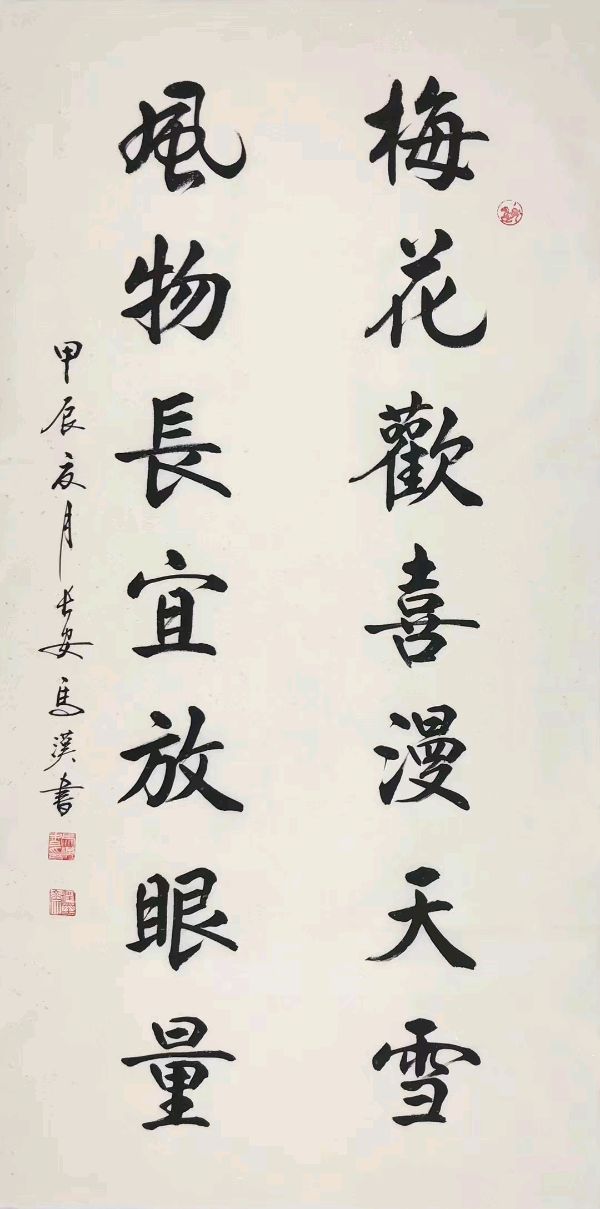 梅花歡喜漫天雪
風物長宜放眼量
甲辰夏月長安馬漢書